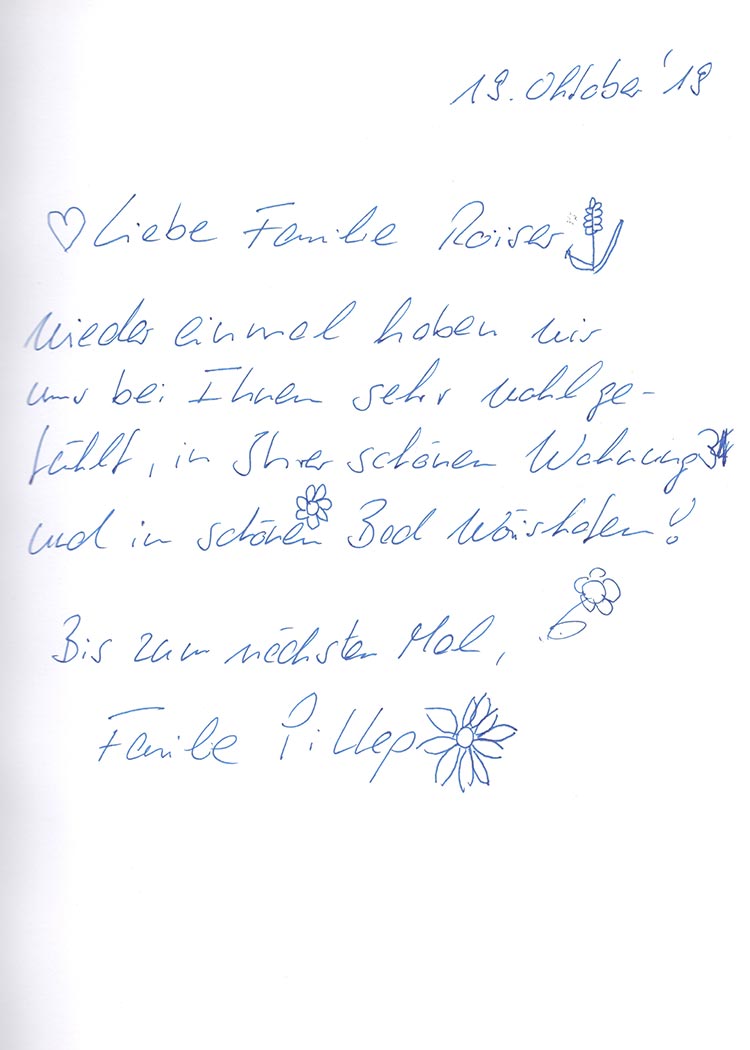 19. Oktober '19
Liebe Familie Roiser
wieder einmal haben wir
uns bei Ihnen sehr wohl ge-
fühlt, in Ihrer schönen Wohnung
und in schönen Bad Wörishofen!
Bis zum nächsten Mal,
Familie Pillep